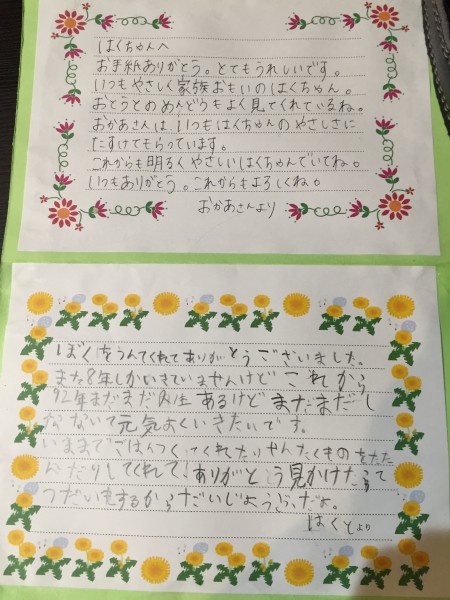 はくちゃんへ
お手紙ありがとう。とてもうれしいです。
いつもやさしく家族おもいのはくちゃん。
おとうとのめんどうもよく見てくれているね。
おかあさんは、いつもはくちゃんのやさしさに
たすけてもらっています。
これからも明るくやさしいはくちゃんでいてね。
いつもありがとう。これからもよろしくね。
おかあさんより
ぼくをうんでくれてありがとうございました。
まだ8年しかいきていませんけど これから
92年まだまだ人生 あるけど まだまだし
なないで元気よくいきたいです。
いままでごはんつくってくれたりせんたくものをたた
んだりしてくれて、ありがとう見かけたらてつ
だいをするからだいじょうぶだよ。
はくとより